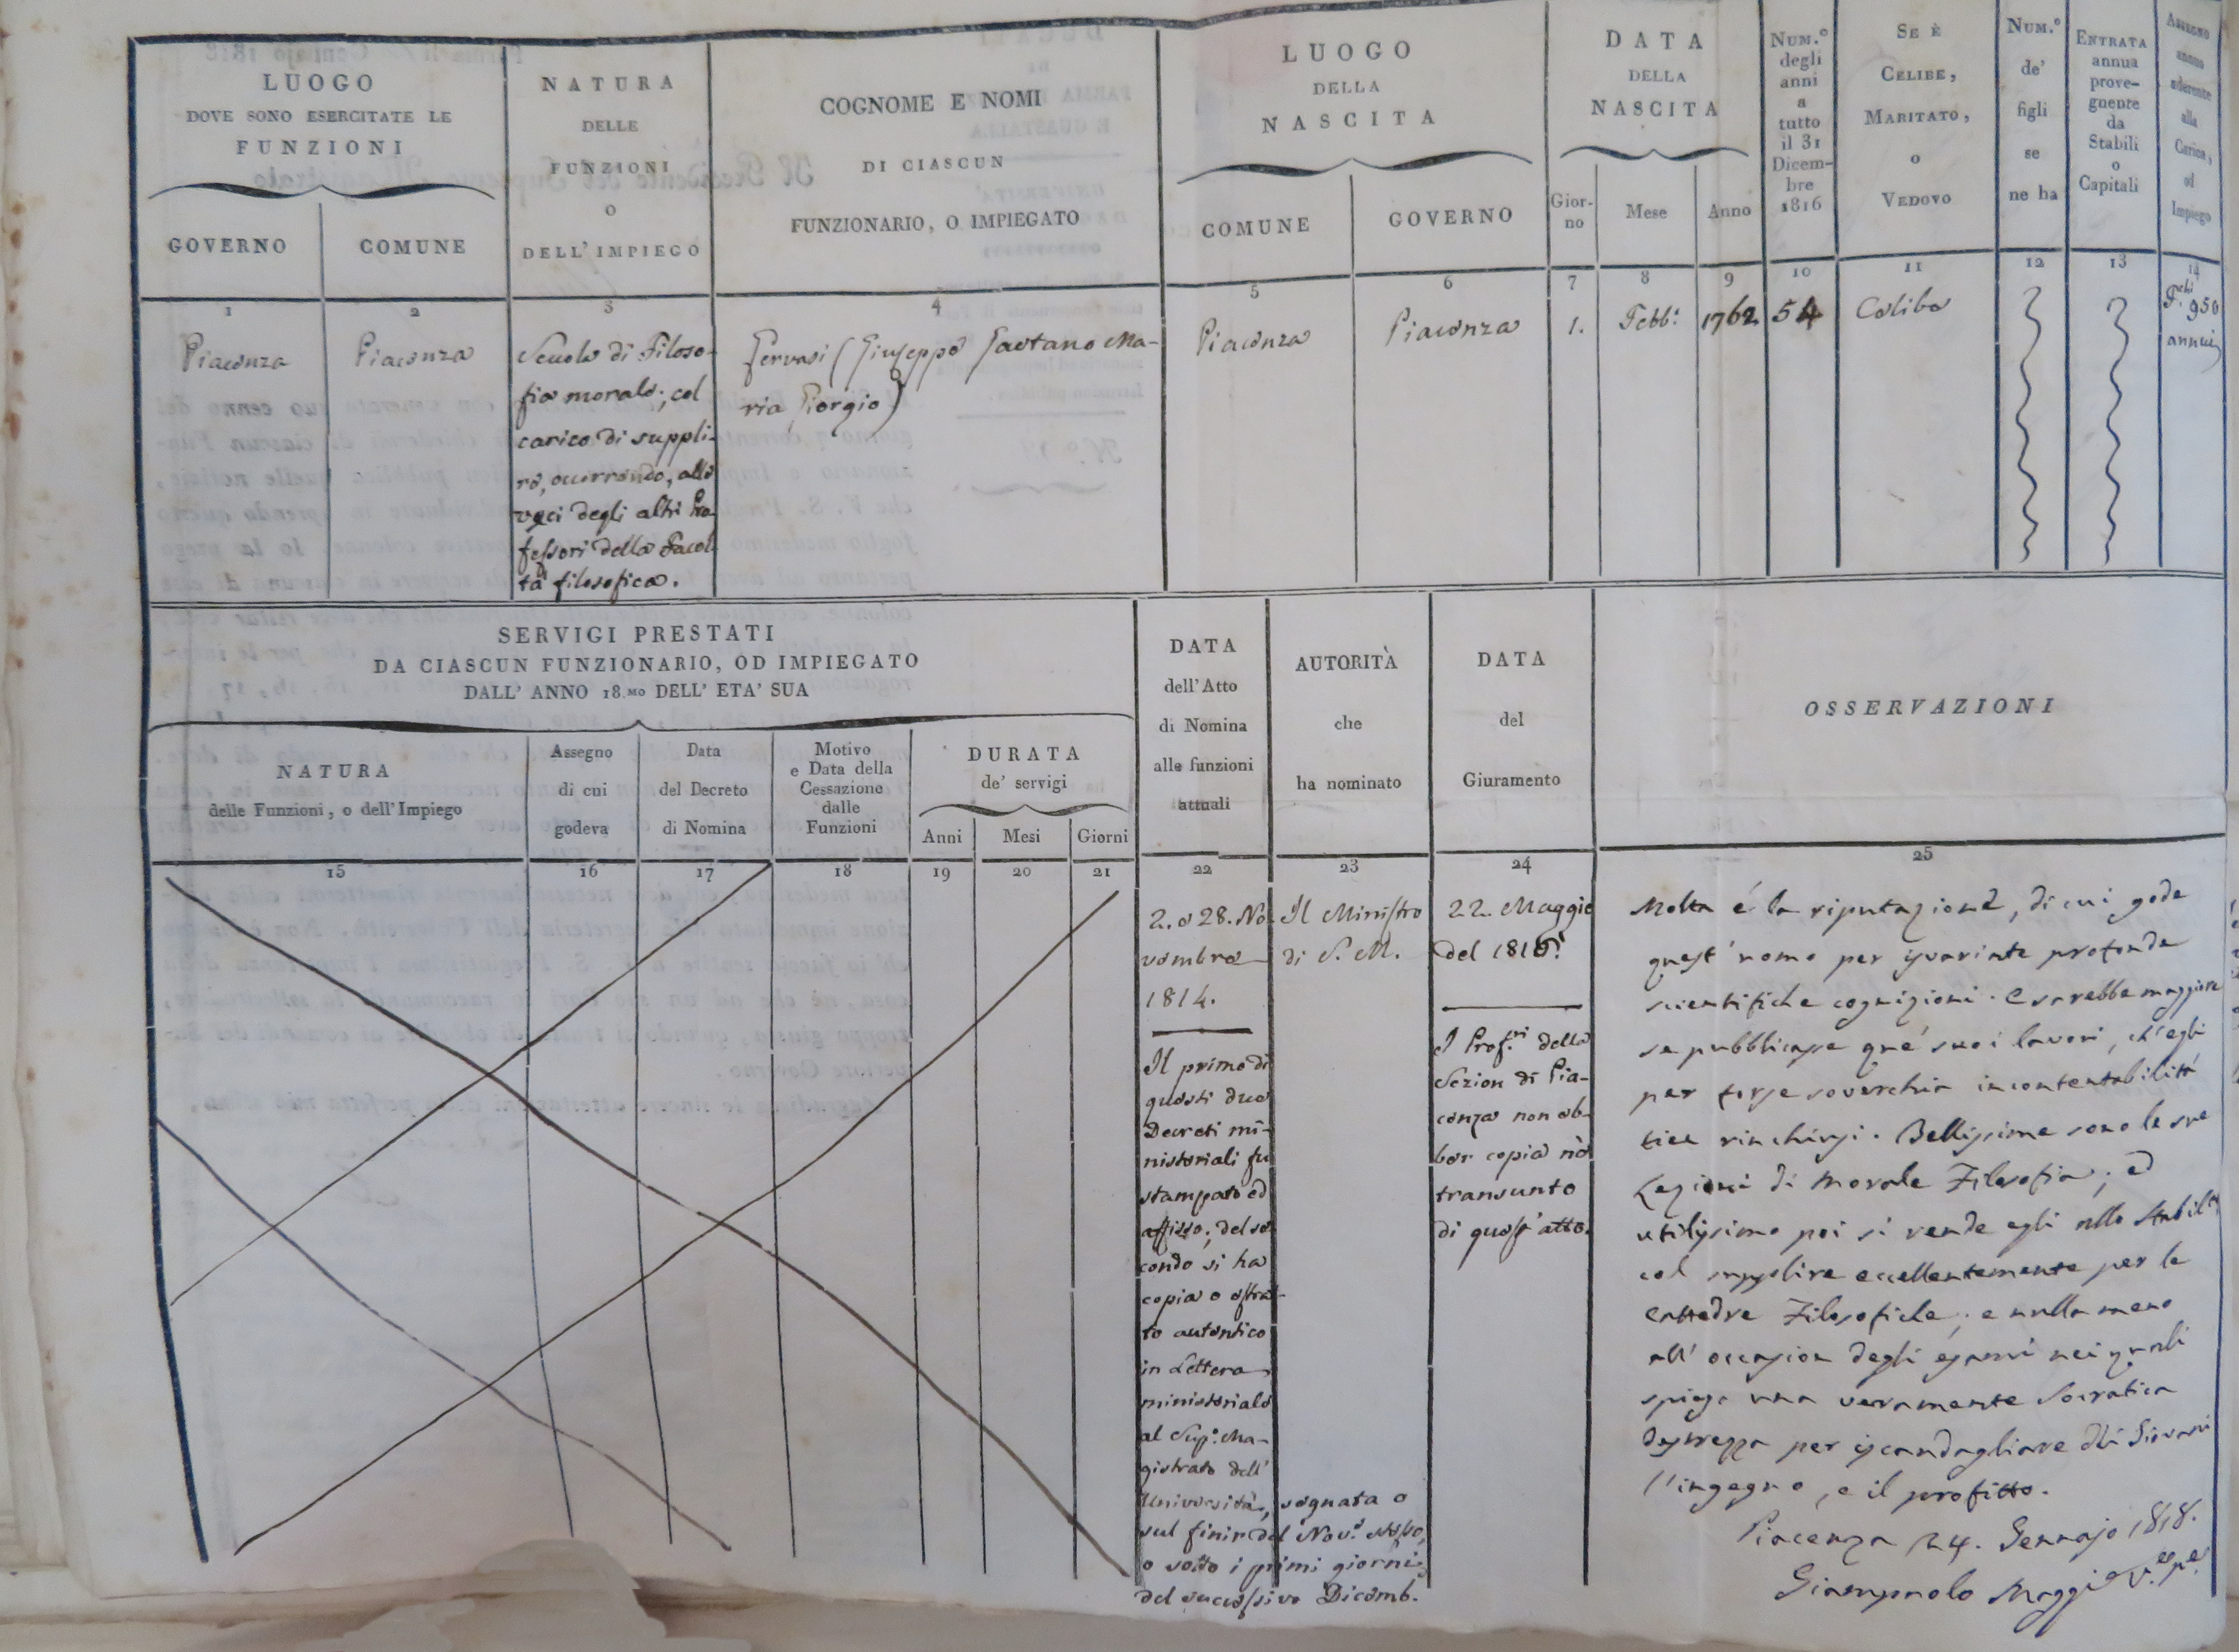 LUOGO
DOVE SONO ESERCITATE LE
FUNZIONI
GOVERNO
COMUNE
NATURA
DELLE
FUNZIONI
O
DELL'IMPIEGO
COGNOME E NOMI
DI CIASCUN
FUNZIONARIO, O IMPIEGATO
LUOGO
DELLA
NASCITA
COMUNE
GOVERNO
DATA
DELLA
NASCITA
Gior-
no
Mese
Anno
NUM.º
degli
anni
a
tutto
il 31
Dicem-
bre
1816
SE È
CELIBE,
MARITATO,
O
VEDOVO
NUM.º
de'
figli
se
ne ha
ENTRATA
annua
prove-
gnente
da
Stabili
o
Capitali
ASSEGNO
annuo
aderente
alla
Carica,
od
Impiego
1
2
3
4
5
6
7
8
9
10
11
12
13
14
Piacenza
Piacenza
Scuola di Filoso-
fia morale; col
carico di suppli-
re, occorrendo, alle
veci degli altri Pro-
fessori della Facol-
tà filosofica.
Gervasi (Giuseppe Gaetano Ma-
ria Giorgio)
Piacenza
Piacenza
1.
Febb.º
1762
54
Celibe
F.chi 950
annui
SERVIGI PRESTATI
DA CIASCUN FUNZIONARIO, OD IMPIEGATO
DALL' ANNO 18.MO DELL' ETA' SUA
NATURA
delle Funzioni, o dell'Impiego
Assegno
di cui
godeva
Data
del Decreto
di Nomina
Motivo
e Data della
Cessazione
dalle
Funzioni
DURATA
de' servigi
Anni
Mesi
Giorni
DATA
dell'Atto
di Nomina
alle funzioni
attuali
AUTORITÀ
che
ha nominato
DATA
del
Giuramento
OSSERVAZIONI
15
16
17
18
19
20
21
22
23
24
25
2. e 28. No
vembre
1814.
Il primo di
questi due
Decreti mi-
nisteriali fu
stampato ed
affisso; del se-
condo si ha
copia o estrat-
to autentico
in Lettera
ministeriale
al Sup.º Ma-
gistrato dell'
Università, segnata o
sul finir del Nov.e stesso,
o sotto i primi giorni
del successivo Dicemb.
Il Ministro
di S. M.
22. Maggio
del 1816.
I Prof.ri della
Sezion di Pia-
cenza non eb-
ber copia nè
transunto
di quest'atto.
Molta é la riputazione, di cui gode
quest'uomo per isvariate profonde
scientifiche cognizioni. E sarebbe maggiore
se pubblicasse que' suoi lavori, ch'egli
per forse soverchia incontentabilità
tien rinchiusi. Bellissime sono le sue
Lezioni di Morale Filosofia; ed
utilissimo poi si rende egli allo Stabil.to
col supplire eccellentemente per le
Cattedre Filosofiche, e nulla meno
all'occasion degli esami nei quali
spiega una veramente Socratica
destrezza per iscandagliare dei Giovani
l'ingegno, e il profitto.
Piacenza 24. Gennajo 1818.
Giampaolo Maggi